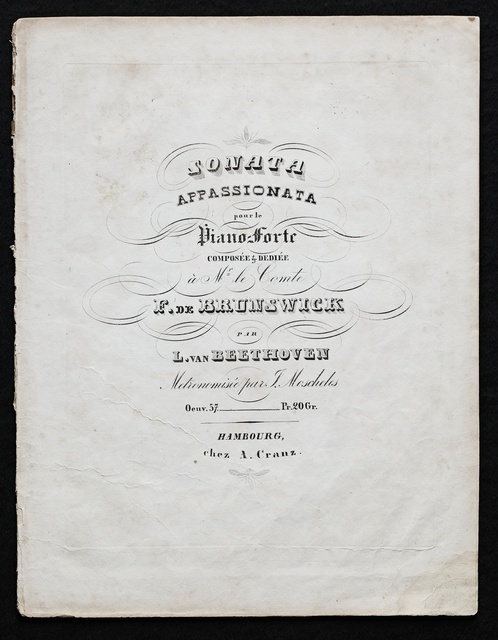 SONATA
APPASSIONATA
pour le
Piano-Forte
COMPOSÉE & DEDIÉE
à Mr. le Comte
F. DE BRUNSWICK
PAR
L. VAN BEETHOVEN
Metronomisée par J. Moscheles
Oeuv. 57. Pr. 20 Gr.
HAMBOURG,
chez A. Cranz.